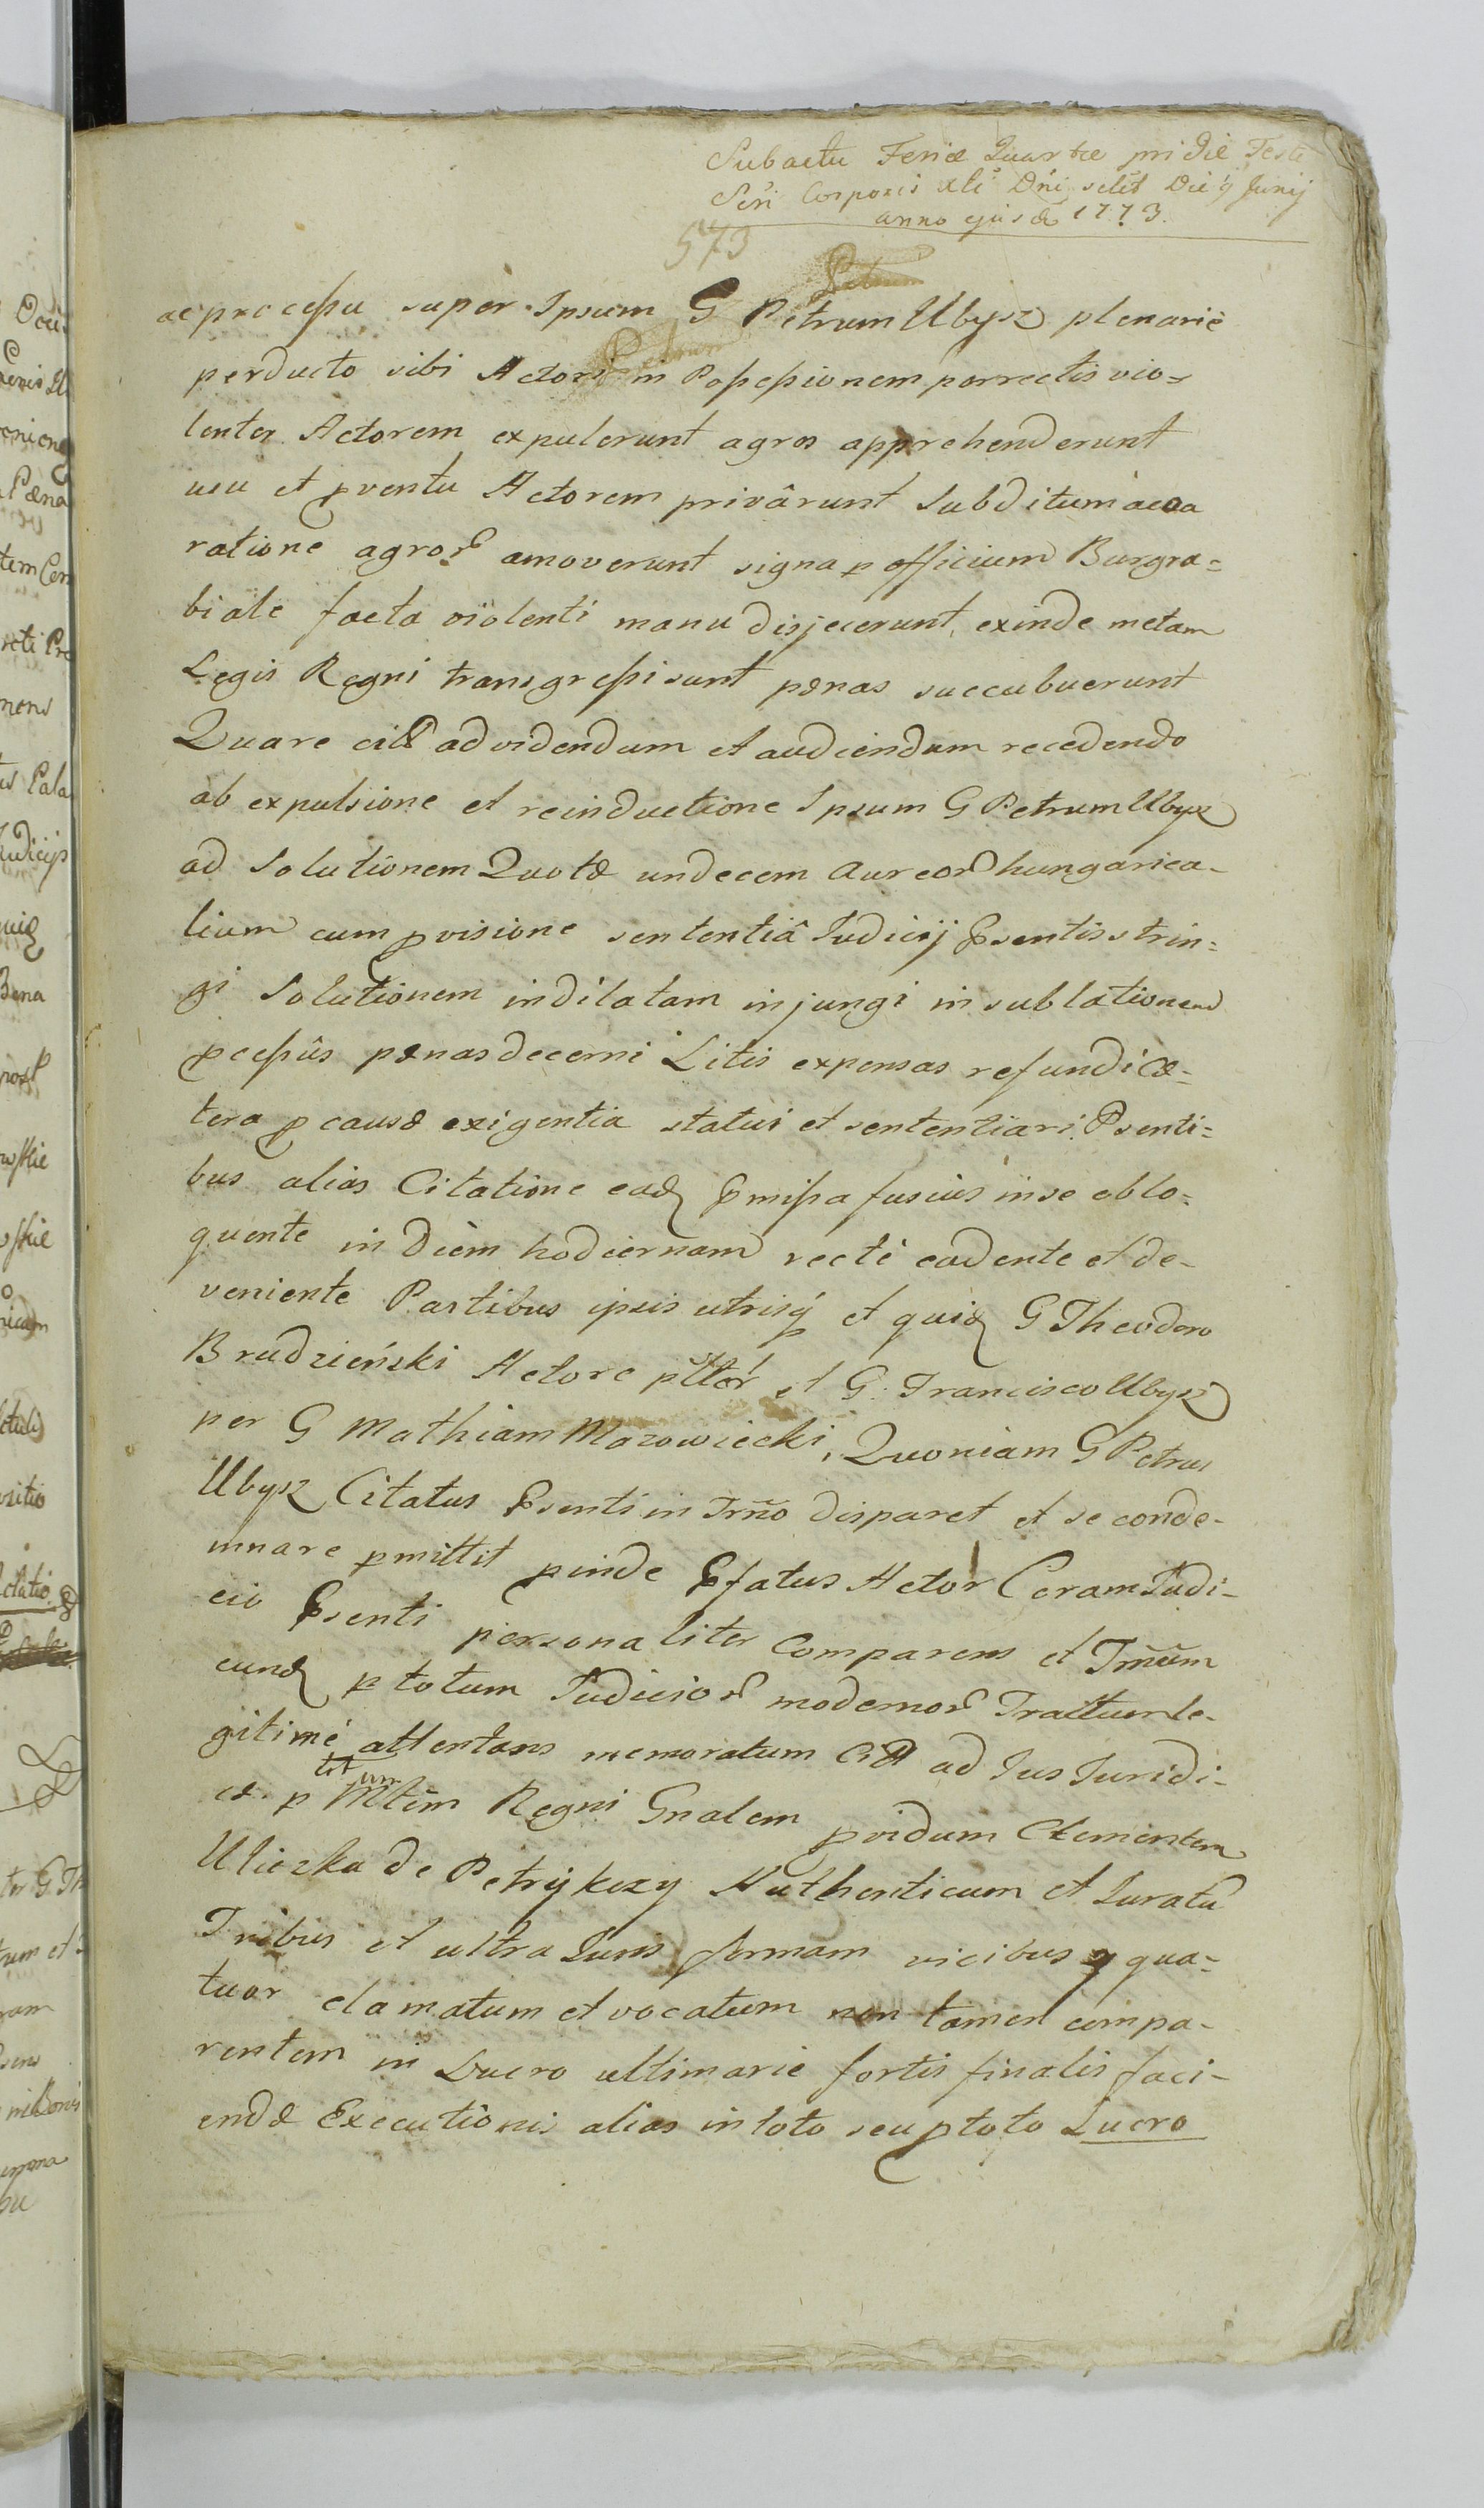 Subactu Feriæ Quartæ pridie Festi
Scri Corporis Xti Dni scilt Die 9 Junij
anno ejusd 1773.
573
ac processu super Ipsum G Petrum Ubysz plenarie
perducto sibi Actori in Possessionem porrectis vio-
lenter Actorem expulerunt agros apprehenderunt
usu et pventu Actorem privârunt Subditum
ratione agror amoverunt signa p officium Burgra=
biale facta violenti manu disjecerunt, exinde metam
Legis Regni transgressi sunt pænas succubuerunt
Quare citt ad videndum et audiendum recedendo
ab expulsione et reinductione Ipsum G Petrum Ubysz
ad Solutionem Quotæ undecem Aureor hungarica-
lium cum pvisione sententiâ Judicij Psentis strin=
gi Solutionem indilatam injungi in sublationem
pcessûs pænas decerni Litis expensas refundi Cæ=
tera p causæ exigentia statui et sententiari. Psenti=
bus alias Citatione ead Pmissa fusius in se eblo=
quente in Diem hodiernam recte cadente et de-
veniente Partibus ipsis utrisq et quid G Theodoro
Brudzieński Actore plter et G. Francisco Ubysz
per G Mathiam Mazowiecki, Quoniam G Petrus
Ubysz Citatus Psenti in Trno disparet et se conde-
mnare pmittit pinde Pfatus Actor Coram Judi-
cio Psenti personaliter Comparens et Trnum
eund p totum Judicior modernor Tractum le-
gitimé attentans memoratum Citt ad Jus Juridi-
cæ p Mtrm Regni Gnalem pvidum Clementem
Uliczka de Petrykozy Authenticum et Juratu
Tribus et ultra Juris formam vicibus q qua=
tuor clamatum et vocatum non tamen compa-
rentem in Lucro ultimarie fortis finalis faci-
endæ Executionis alias in toto seu ptoto Lucro